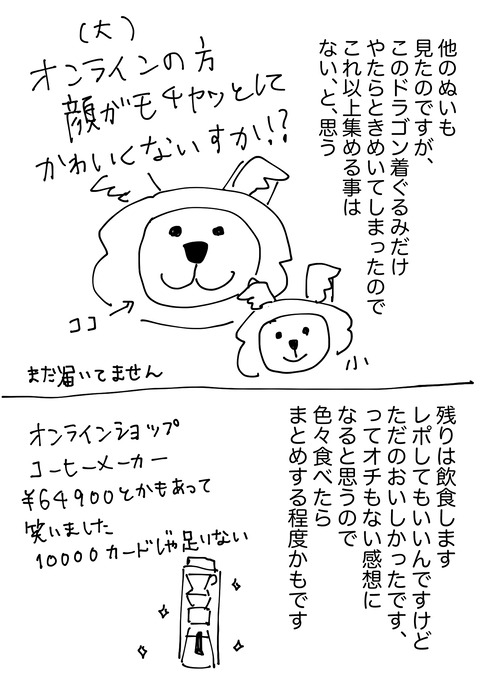 他のぬいも
見たのですが、
このドラゴン着ぐるみだけ
やたらときめいてしまったので
これ以上集める事は
ない、と、思う
(大)
オンラインの方
顔がモチャッとして
かわいくないすか!?
ココ
小
まだ届いてません
残りは飲食します
レポしてもいいんですけど
ただのおいしかったです、
ってオチもない感想に
なると思うので
色々食べたら
まとめする程度かもです
オンラインショップ
コーヒーメーカー
¥64900とかもあって
笑いました
10000カードじゃ足いない